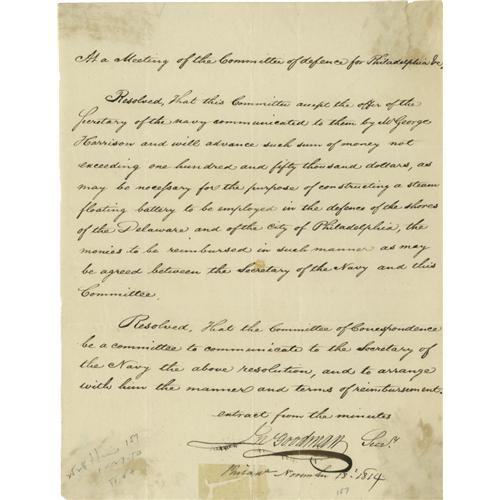 At a Meeting of the Committee of defence for Philadelphia &c,
Resolved, That this Committee accept the offer of the
Secretary of the navy communicated to them by Mr George
Harrison and will advance such sum of money not
exceeding one hundred and fifty thousand dollars, as
may be necessary for the purpose of constructing a steam
floating battery to be employed in the defence of the shores
of the Delaware and of the City of Philadelphia, the
monies to be reimbursed in such manner as may
be agreed between the Secretary of the Navy and this
Committee.
Resolved, That the Committee of Correspondence
be a committee to communicate to the Secretary of
the Navy the above resolution, and to arrange
with him the manner and terms of reimbursement.
extract from the minutes
Goodman Secy
Philada November 18: 1814
157
157